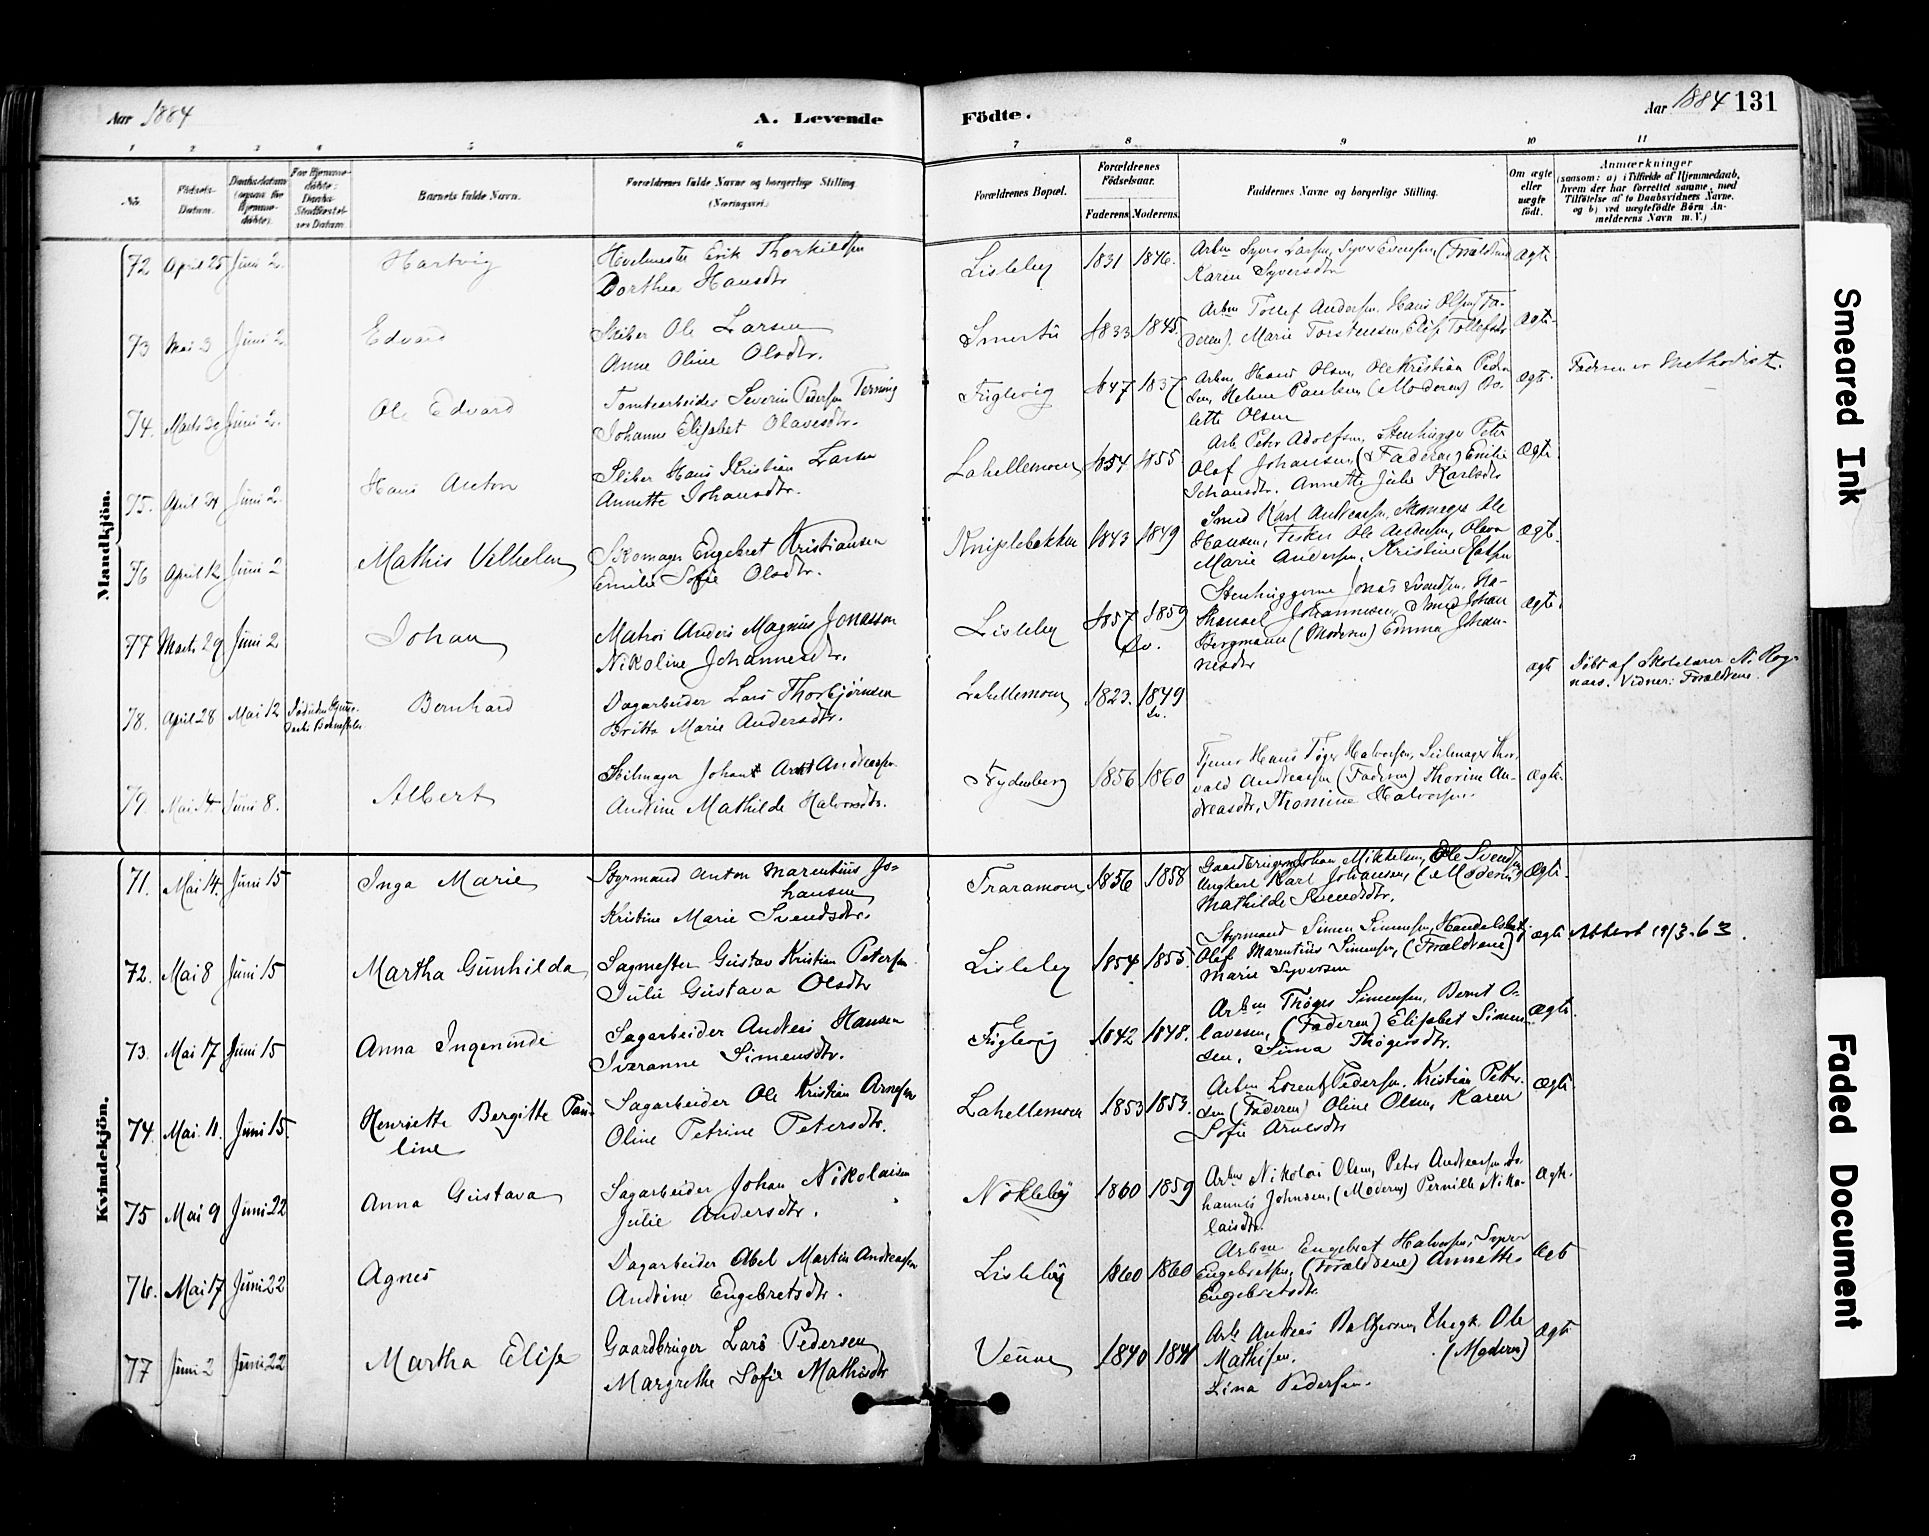 Aar 1884
A. Levende
Födte.
Aar 1884 131
1 2 3 4 5 6 7 8 9 10 11
No.
Födsels-
Datum.
Daabsdatum
(ogsaa for
Hjemme-
döbte).
For Hjemme-
döbte:
Daabs
Stadfæstel-
ses Datum.
Barnets fulde Navn.
Forældrenes fulde Navne og borgerlige Stilling
(Næringsvei.)
Forældrenes Bopæl.
Forældrenes
Födselsaar.
Faderens Moderens.
Faddernes Navne og borgerlige Stilling.
Om ægte
eller
uægte
födt.
Anmærkninger
(saasom: a) i Tilfælde af Hjemmedaab,
hvem der har forrettet samme, med
Tilföielse af to Daabsvidners Navne.
og b) ved uægtefödte Börn An-
melderens Navn m. V.)
Mandkjön.
72 April 25 Juni 2. Hartvig
Høvelmester Erik Thorkildsen
Dorthea Hansdtr
Lisleby 1831 1846.
Arbm Syver Larsen, Syver Evensen, (Forældrene)
Karen Syversdtr
Ægte
73 Mai 3 Juni 2. Edvard
Skiber Ole Larsen
Anne Oline Olsdtr.
Smertu 1833 1845
Arbm Tollef Andersen, Hans Olsen (Fa-
deren), Marie Torstensen, Elise Tollefsdtr
Ægte.
74. Marts 30 Juni 2. Ole Edvard
Tomtearbeider Severin Pedersen Terning
Johanne Elisabet Olavesdtr.
Trglevig 1847 1837
Arbm Hans Olsen, Ole Kristian Peder-
sen, Helene Paulsen, (Moderen)
lette Olsen
Ægte.
Faderen er Methodist.
75. April 24 Juni 2. Hans Anton
Skiber Hans Kristian Larsen
Annette Johansdtr.
Lahellemoen 1854 1855
Arb. Petter Adolfsen, Stenhugger Peter
Olaf Johansen, (Faderen) Emilie
Johansdtr. Annette Julie Karlsdtr
Ægte
76 April 12 Juni 2 Mathis Vilhelm
Skomager Engebret Kristiansen
Emilie Sofie Olsdtr.
Kniplebakken 1843 1849
Smed Karl Andreasen, Skomager Ole
Hansen, Fisker Ole Andersen, Olava
Marie Andersen, Kristine Hansen
Ægte.
77 Marts 29 Juni 2 Johan
Matros Anders Magnus Jonasson
Nikoline Johannesdtr.
Lisleby 1857 1859
Sv.
Stenhuggerne Jonas Svendsen, Ha-
Johannesen, Smed Johan
Bergmann (Moderen) Emma Johan-
nesdtr
Ægte.
78. April 28 Mai 12 Bernhard
Dagarbeider Lars Thorbjørnsen
Britta Marie Andersdtr.
Lahellemoen 1823. 1849
Sv.
Ægte
Døbt af Skolelærer N. Rog-
naas. Vidner: Forældrene.
79. Mai 4 Juni 8. Albert
Seilmager Johan Arnt Andreasen
Andrine Mathilde Halvorsdtr.
Frydenberg 1856 1860
Tjener Hans Tøger Halvorsen, Seilmager Thor-
vald Andreasen (Faderen) Thorine An-
dreasdtr, Thomine Halvorsen.
Ægte.
Kvindekjön.
71. Mai 14. Juni 15 Inga Marie
Styrmand Anton Marentius Jo-
hansen
Kristine Marie Svendsdtr.
Traramoen 1856 1858
Gaardbruger Johan Mikkelsen, Ole Svendsen
Ungkarl Karl Johansen, (Moderen)
Mathilde Svendsdtr.
Ægte.
72. Mai 8 Juni 15 Martha Gunhilda
Sagmester Gustav Kristian Petersen
Julie Gustava Olsdtr
Lisleby 1854 1855.
Styrmand Simen Simensen, Handelsbetj.
Olaf Marentius Simensen, (Forældrene)
Marie Syversen
Ægte Attest 19/3-63.
73. Mai 17 Juni 15 Anna Ingeninde
Sagarbeider Andreas Hansen
Iveranne Simensdtr.
Trglevig 1842 1848.
Arbm Thøger Simensen, Bernt O-
lavesen, (Faderen) Elisabet Simen-
sen, Sima Thøgersdtr.
Ægte.
74. Mai 11. Juni 15. Henriette Bergitte Pau-
line
Sagarbeider Ole Kristian Arnesen
Oline Petrine Petersdtr.
Lahellemoen 1853 1853.
Arbm Lorentz Pedersen, Kristian Petter-
sen (Faderen) Oline Olsen, Karen
Sofie Arnesdtr
Ægte
75 Mai 9 Juni 22 Anna Gustava
Sagarbeider Johan Nikolaisen
Julie Andersdtr.
Nökleby 1860 1859
Arbm Nikolai Olsen, Peter Andreasen Jo-
hannes Johnsen, (Moderen) Pernille Niko-
laisdtr.
Ægte.
76. Mai 17 Juni 22 Agnes
Dagarbeider Abel Martin Andreasen
Andrine Engebretsdtr.
Lisleby 1860 1860
Arbm Engebret Halvorsen, Syver
Engebretsen, (Forældrene) Annette
Engebretsdtr
77 Juni 2 Juni 22 Martha Elise
Gaardbruger Lars Pedersen
Margrethe Sofie Mathisdtr
Veum 1840 1841
Arb. Andreas Baltzersen, Ungk. Ole
Mathisen. (Moderen)
Lina Pedersen.
Ægte
Smeared Ink
Faded Document